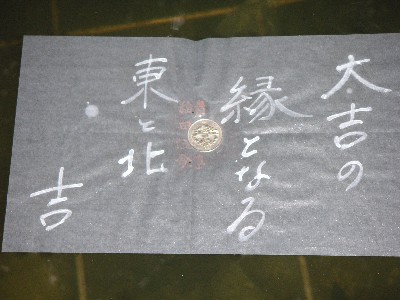 大吉の
縁となる
東と北
吉